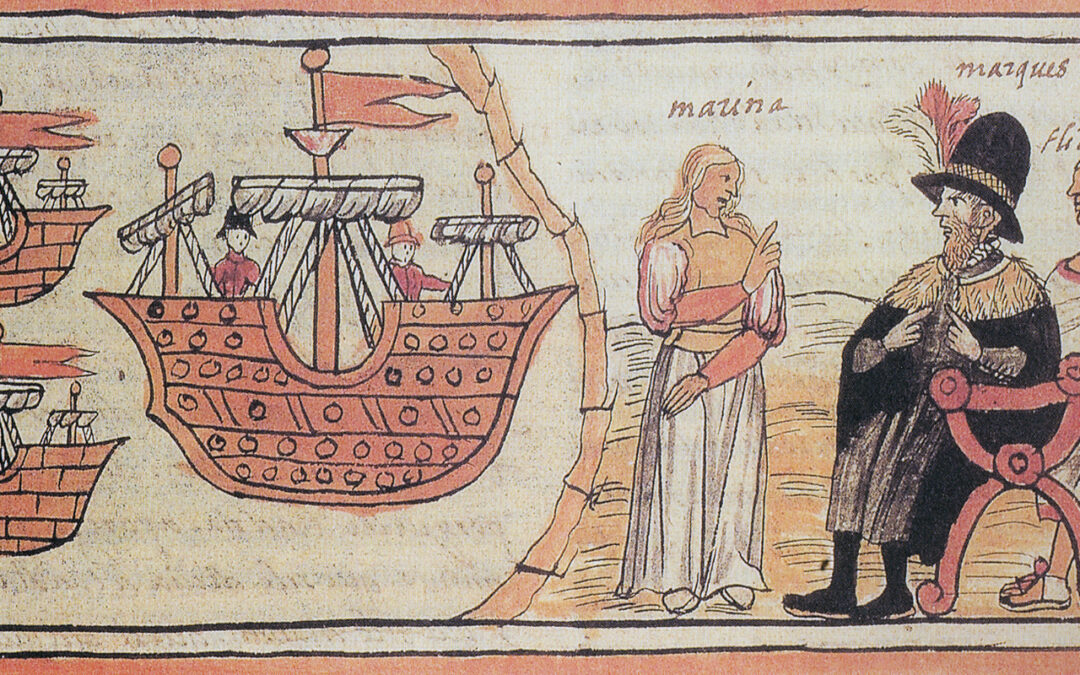 marina
marques